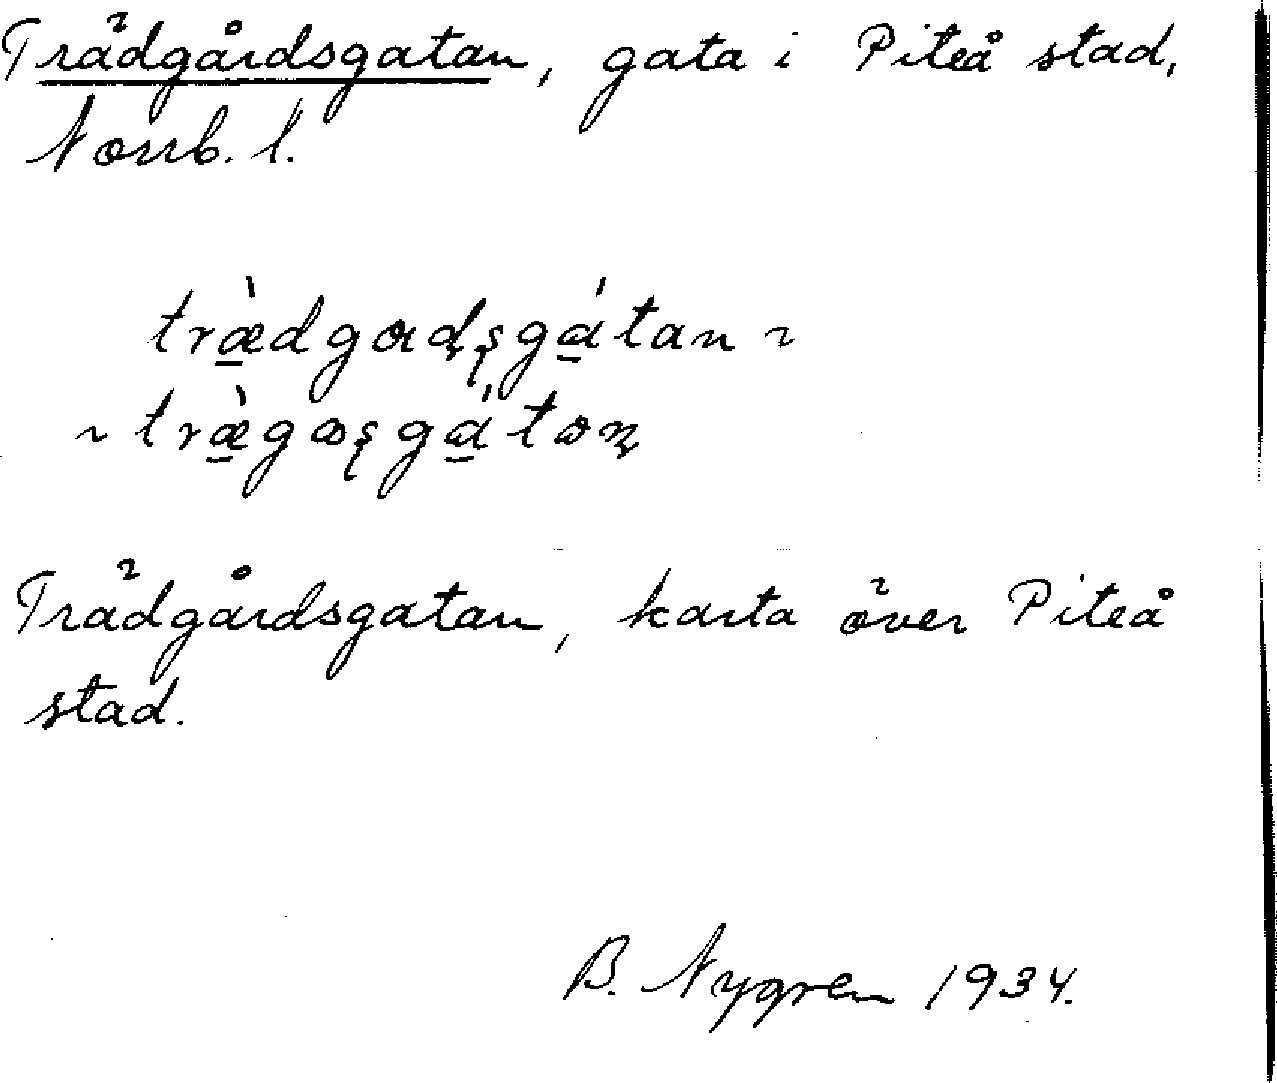 Trädgårdsgatan, gata i Piteå stad,
Norrb. l.
træ̀dgaɖʂgátan ~
~ træ̀gaʂgátaɳ
Trädgårdsgatan, karta över Piteå
stad.
B. Nygren 1934.